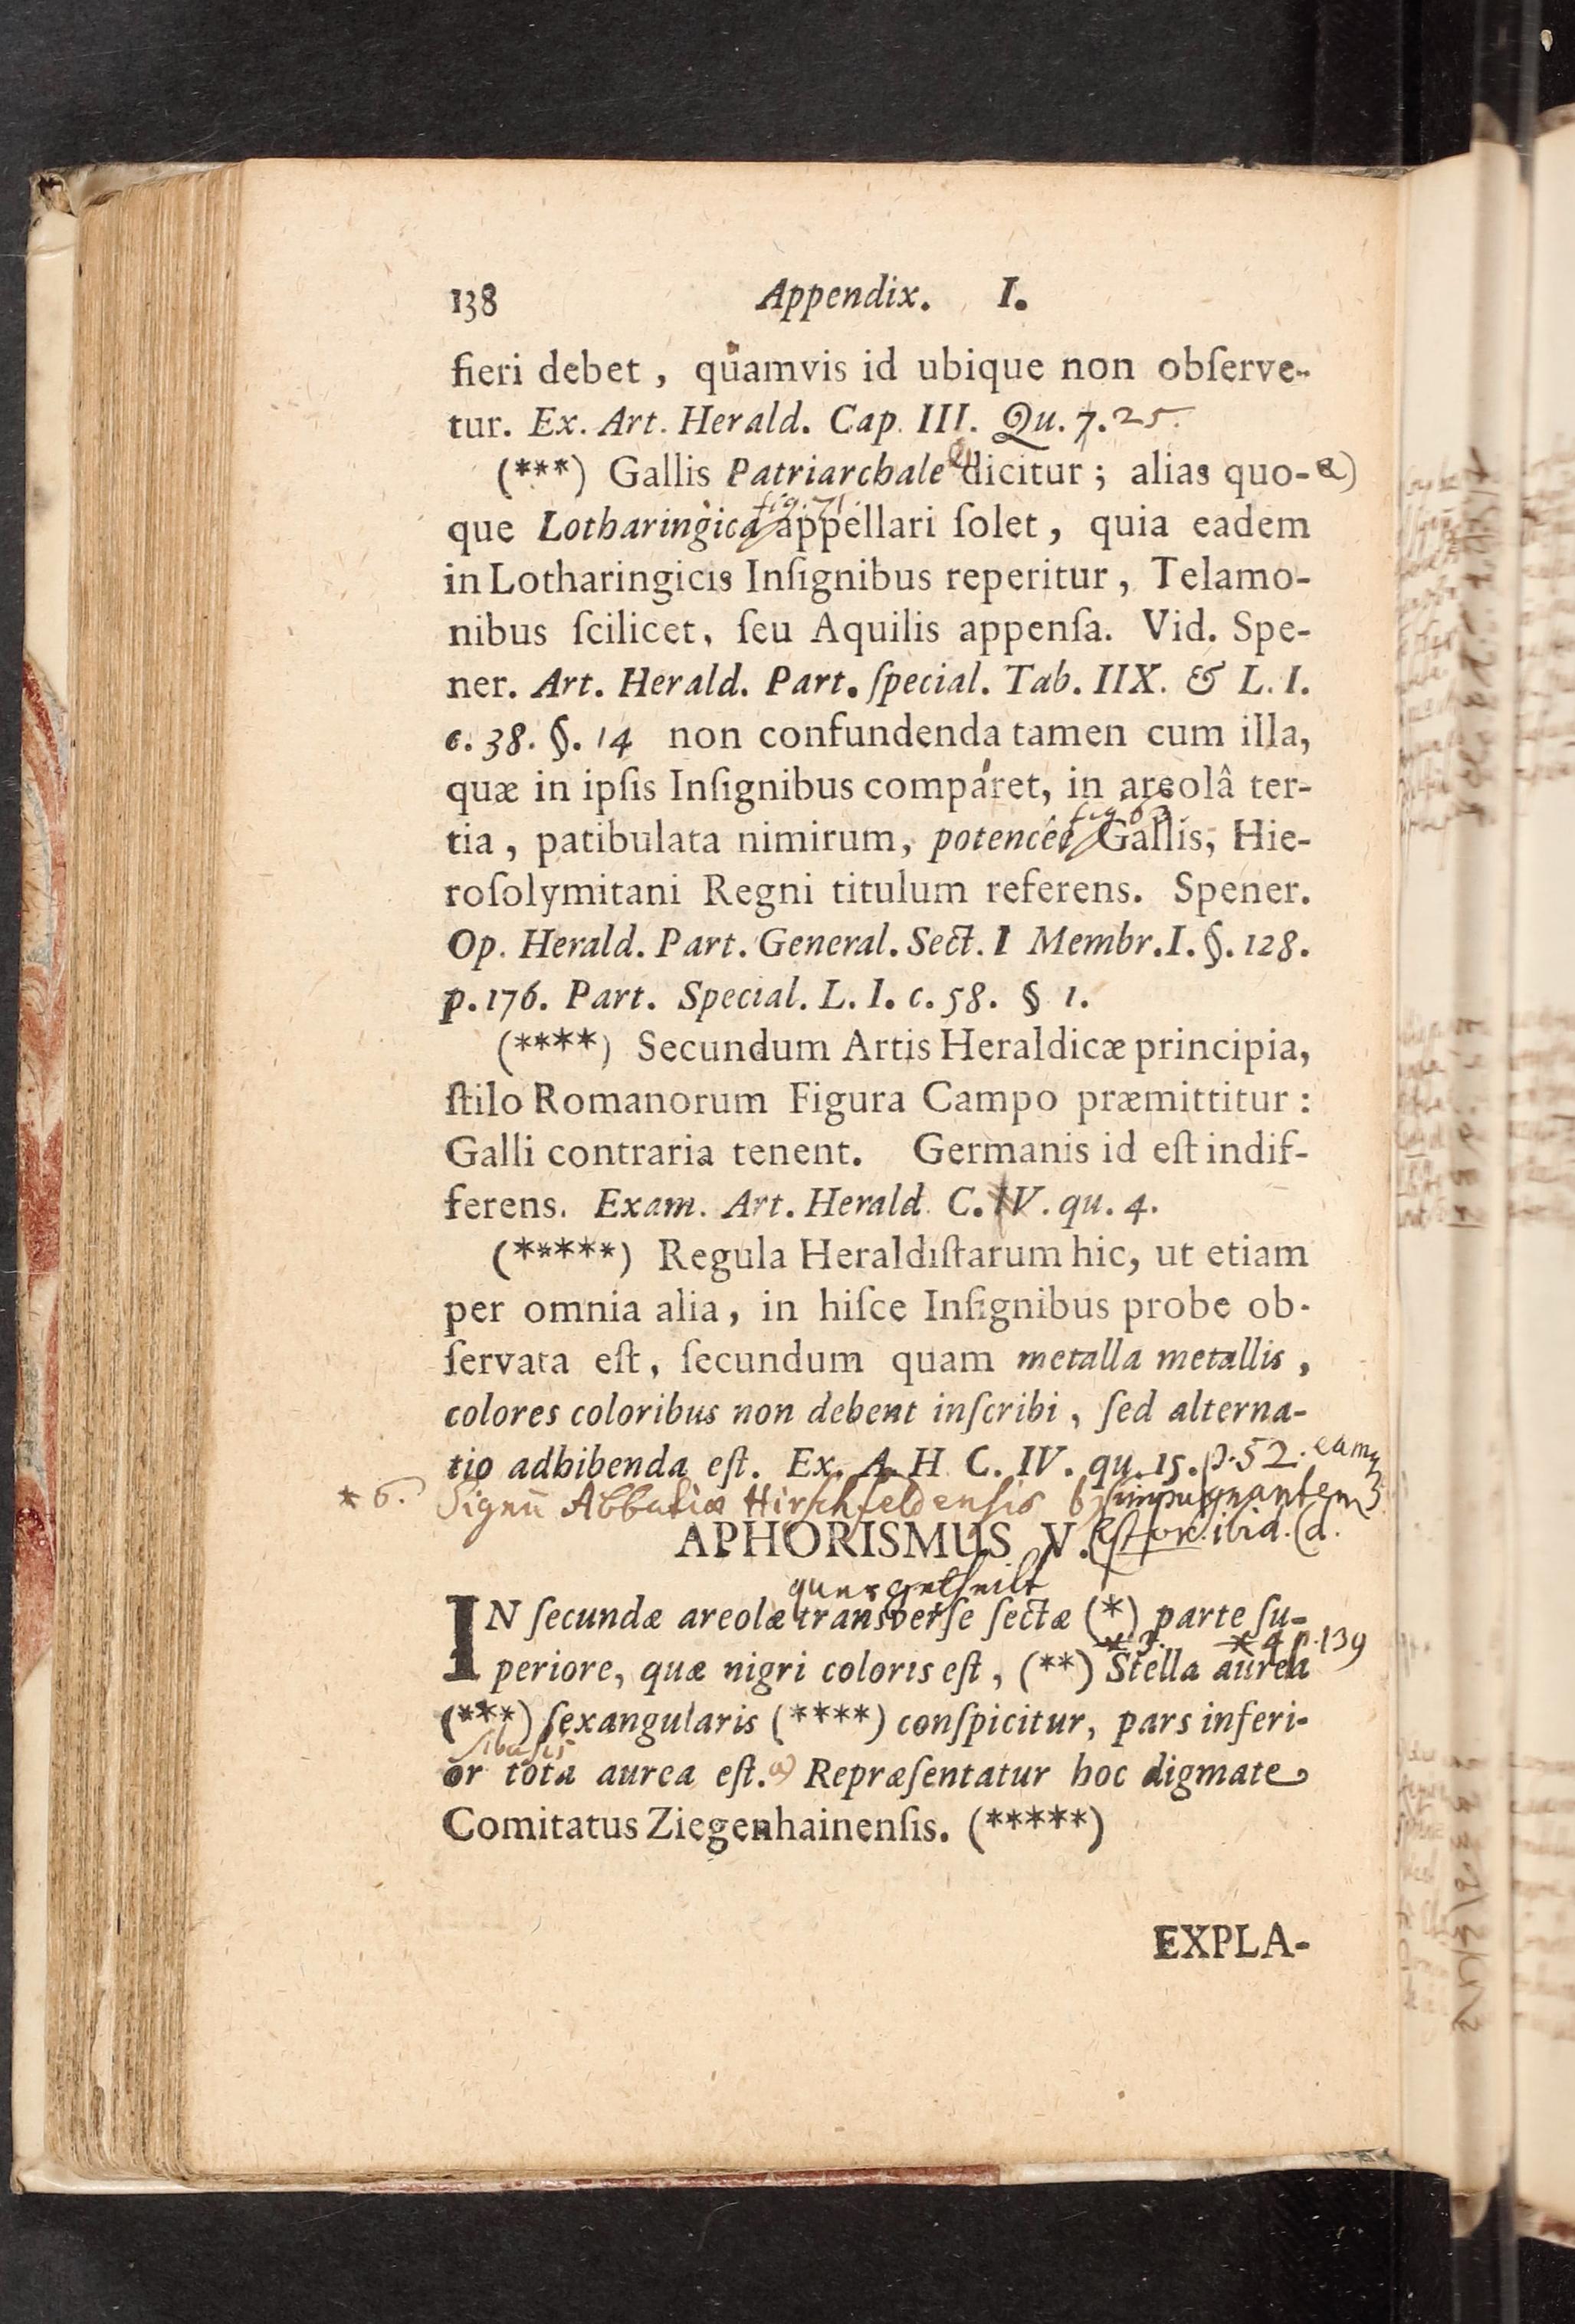 138 Appendix. I.
fieri debet, quamvis id ubique non obſerve-
tur. Ex. Art. Herald. Cap. III. Qu. 7. 25.
(***) Gallis Patriarchale dicitur; alias quo- a)
fig. 71.
que Lotharingica appellari ſolet, quia eadem
in Lotharingicis Inſignibus reperitur, Telamo-
nibus ſcilicet, ſeu Aquilis appenſa. Vid. Spe-
ner. Art. Herald. Part. ſpecial. Tab. IIX. & L. I.
c. 38. §. 14 non confundenda tamen cum illa,
quæ in ipſis Inſignibus comparet, in areolâ ter-
fig.
tia, patibulata nimirum, potencée Gallis, Hie-
roſolymitani Regni titulum referens. Spener.
Op. Herald. Part. General. Sect. I Membr. I. §. 128.
p. 176. Part. Special. L. I. c. 58. § 1.
(****) Secundum Artis Heraldicæ principia,
ſtilo Romanorum Figura Campo præmittitur:
Galli contraria tenent. Germanis id eſt indif-
ferens. Exam. Art. Herald. C. IV. qu. 4.
(*****) Regula Heraldiſtarum hic, ut etiam
per omnia alia, in hiſce Inſignibus probe ob-
ſervata eſt, ſecundum quam metalla metallis,
colores coloribus non debent inſcribi, ſed alterna-
tio adhibenda eſt. Ex. A. H C. IV. qu. 15. p. 52.
* 6. Signū Abbatiæ Hirschfeldensis impugnantem
APHORISMUS V. Estor. ibid. (d.
quergetheilt
IN ſecundæ areolæ transverſe ſectæ (*) parte ſu-
* 3. * 4 p. 139
periore, quæ nigri coloris eſt, (**) Stella aurea
(***) ſexangularis (****) conſpicitur, pars inferi-
or tota aurea eſt. a) Repræſentatur hoc digmate
Comitatus Ziegenhainenſis. (*****)
EXPLA-